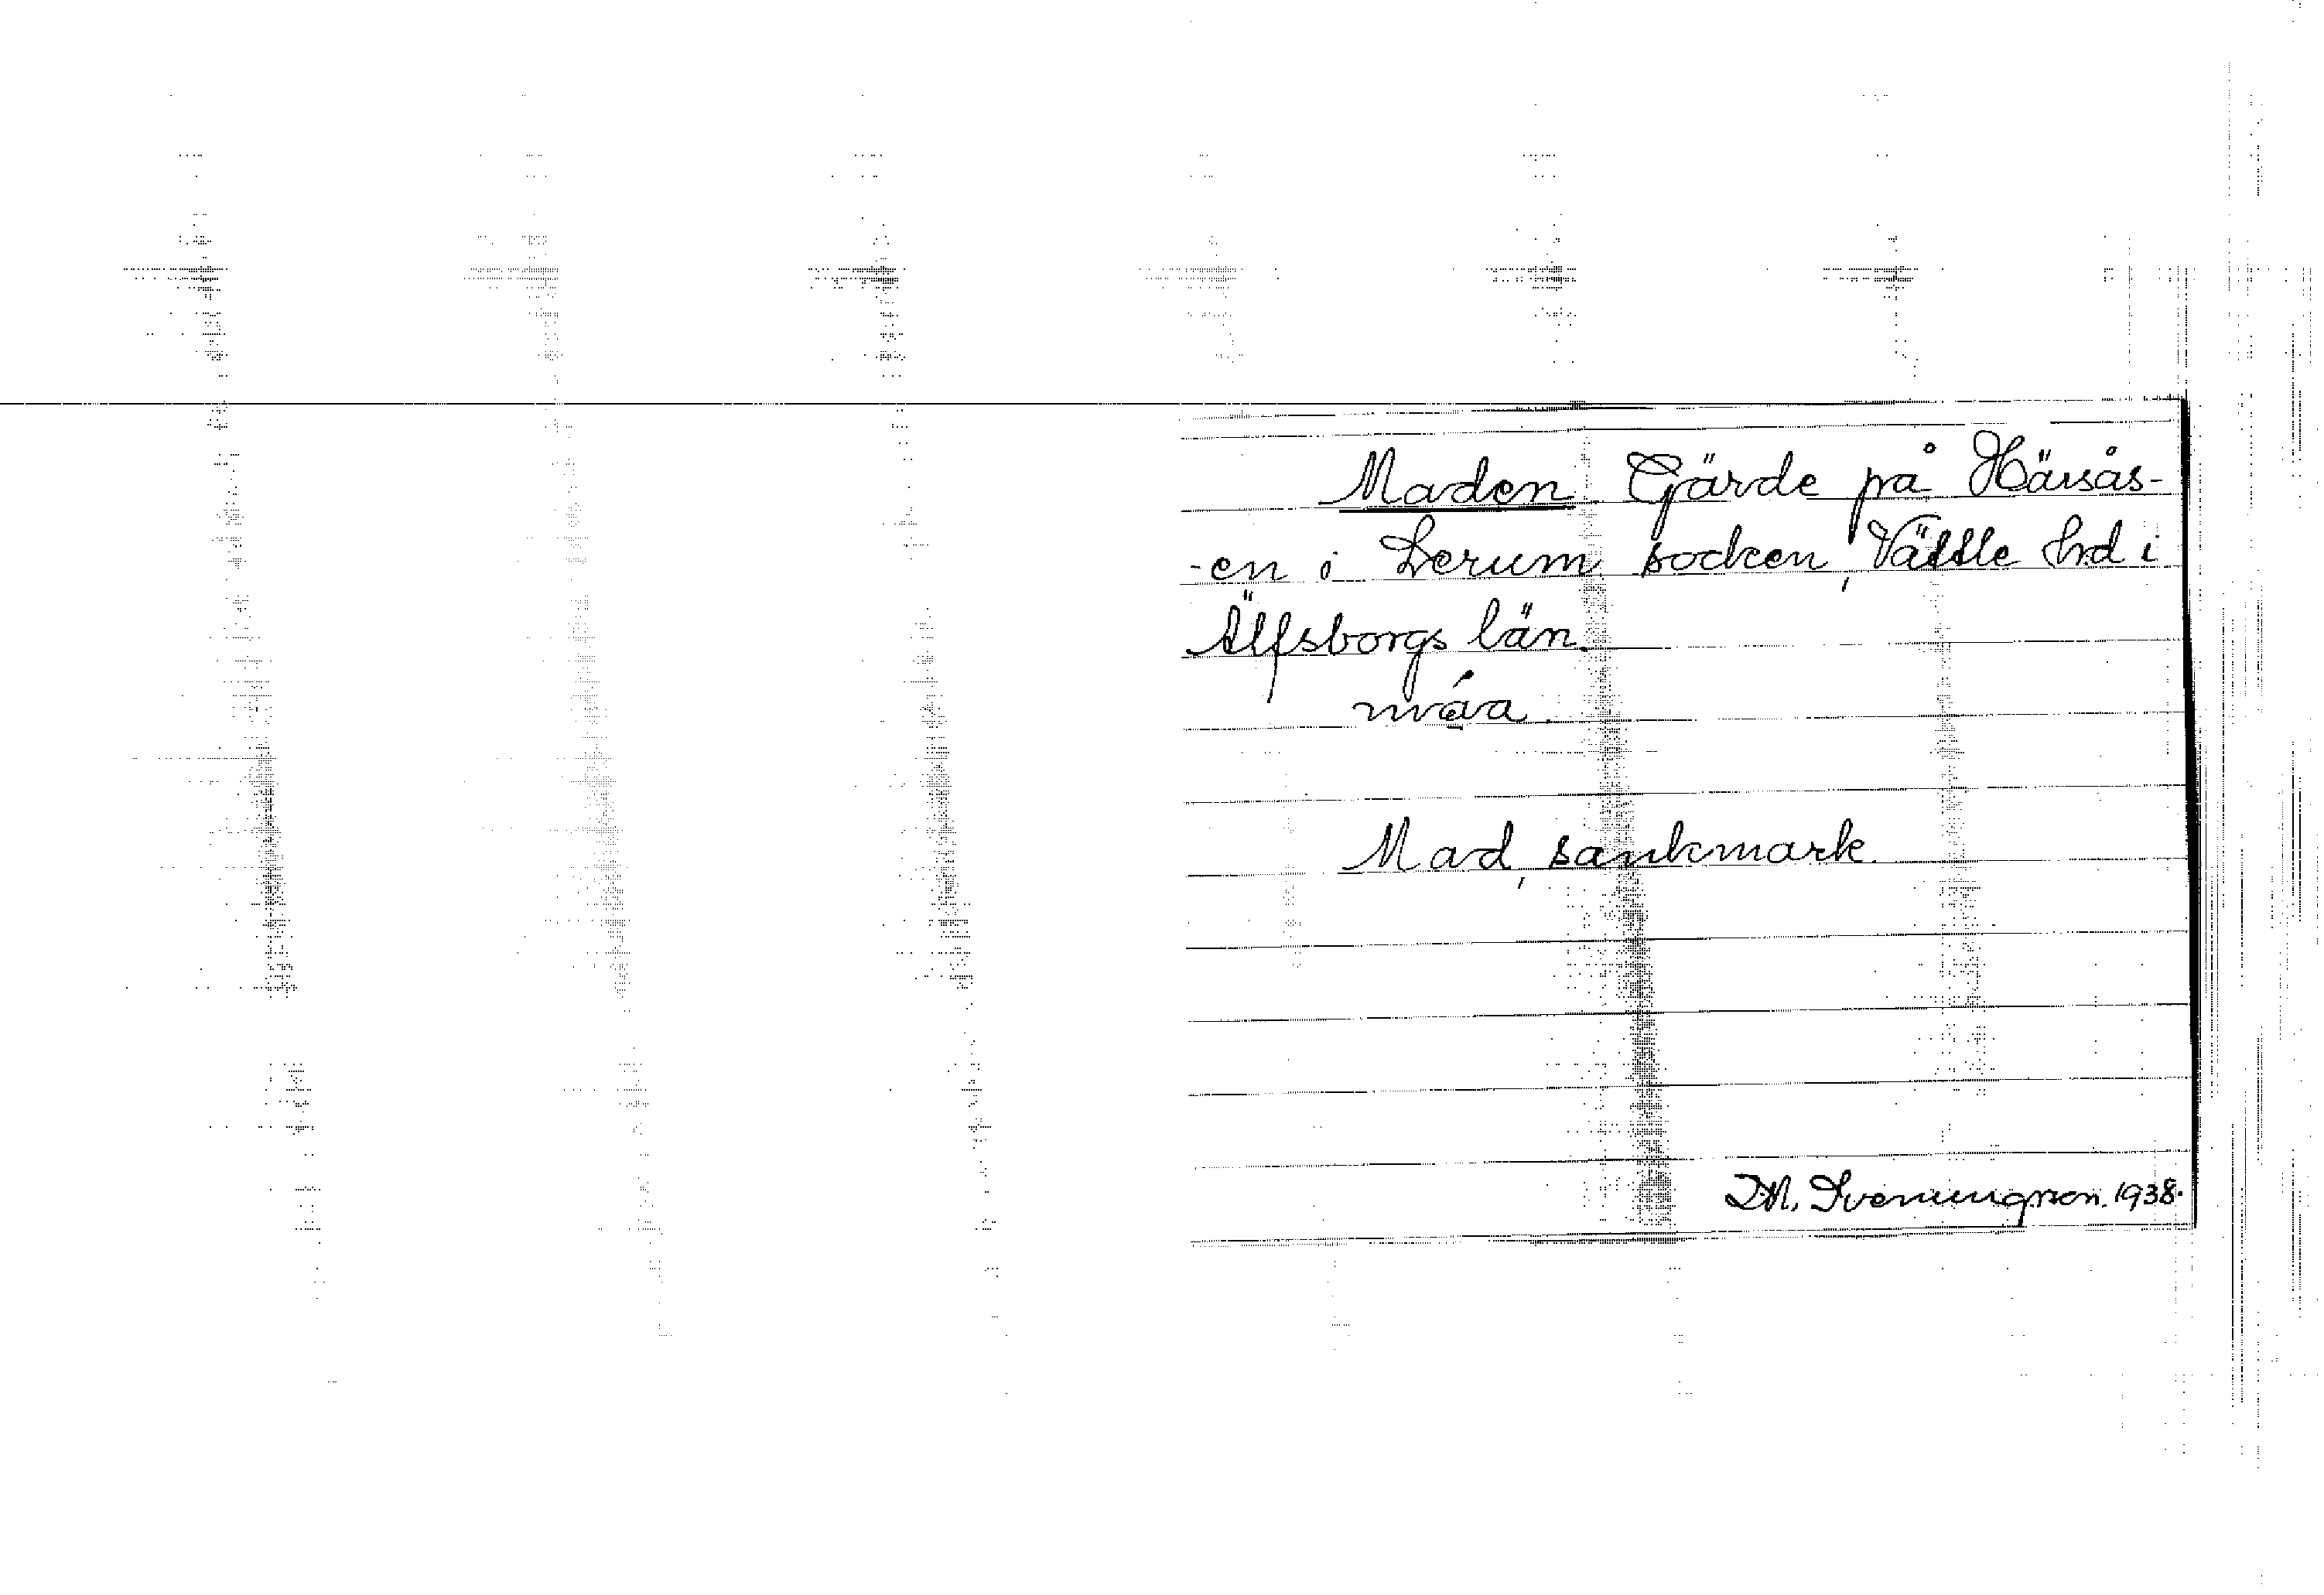 Maden. Gärde på Härsås-
-en i Lerum socken, Vättle hrd i
Älfsborgs län.
Mad, sankmark.
D.A. Svenungsson. 1938.